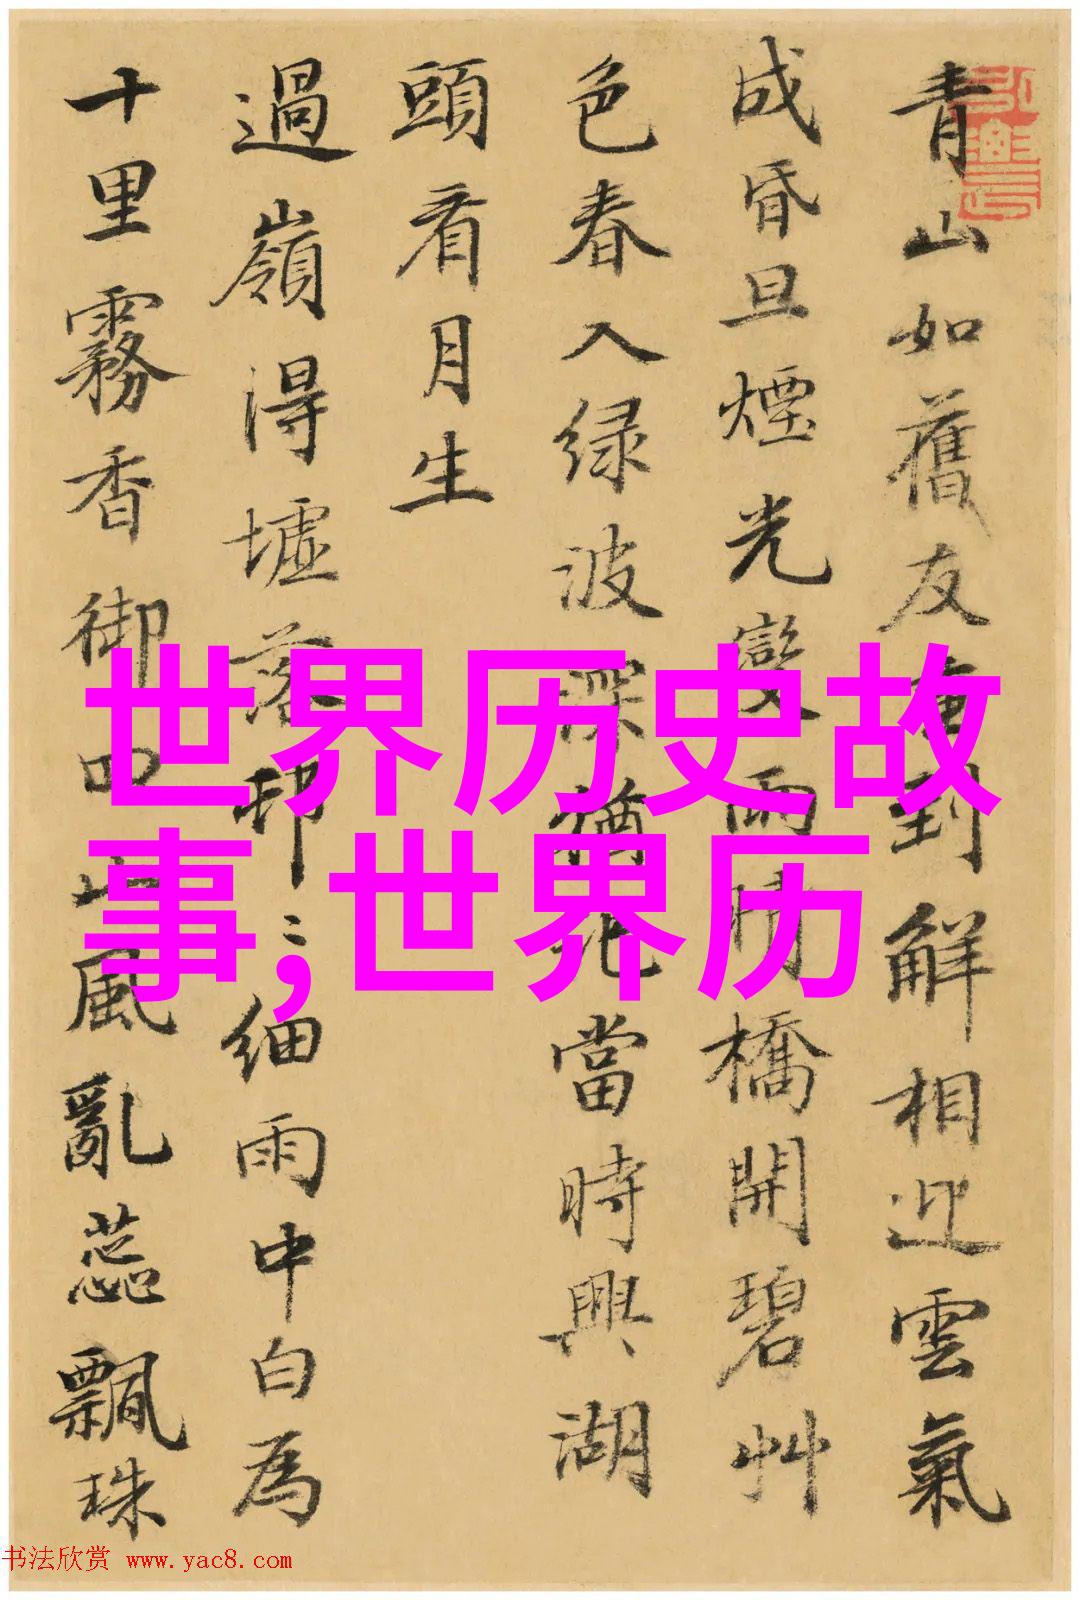 青山如舊友重到解相迎雲氣
成昏旦煙光變雨晴橋開碧艸
色春入绿波深猶記當時興湖
頭看月生
過嶺得墟落邨〻細雨中白為
十里霧香御四山風亂蕊飄珠
世界历史故
事;世界历
书法欣赏 www.yac8.com